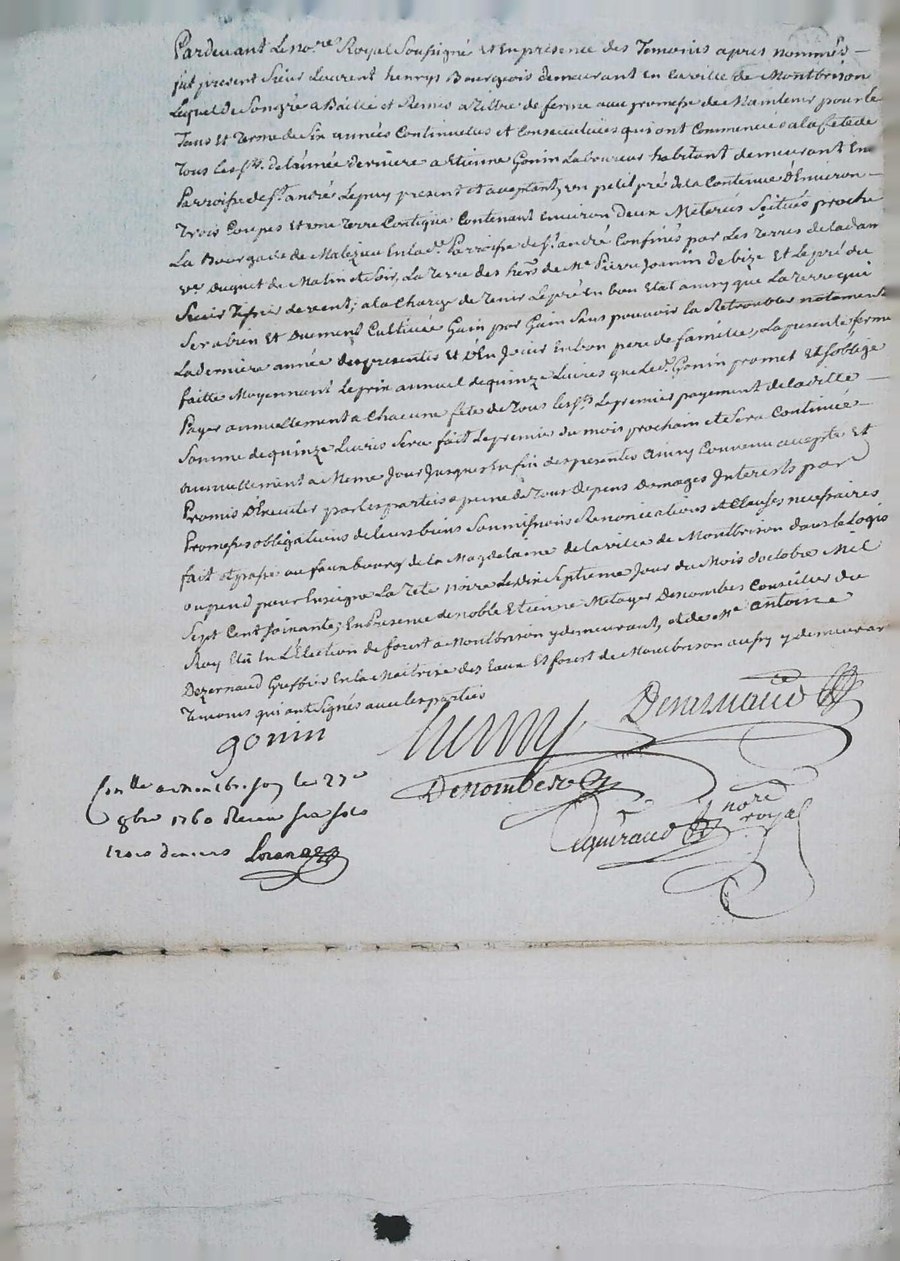 Pardevant Le nore Royal Soussigné et En présence des Temoins apres nommés —
fut present Sieur Laurent henrys Bourgeois demeurant en La ville de Montbrison
Lequel de Son gré a Baillé et Remis a Tiltre de ferme avec promesse de Maintenir pour Le
Tans et Terme de Six années Continuelles et Consecutives qui ont Commencées a la fete de
Tous Les sts de L'année derniere a Etienne Gonin Laboureur habitant demeurant En
Parroisse de st andré Lepuy present et aceptant, un petit pré de la Contenue D'Environ —
Trois Coupes et une Terre Contigue Contenant Environ Deux Meterus Scitués proche
La Bourgade de Malezieu En lad. Parroisse de st andré Confinés par Les Terres de la dam
ve Duguet de Matin et Soir, La Terre des hers de Me Pierre Joanin de bize Et Le pré du
Sieur de vent; a la Charge de Tenir Le pré En bon Etat ainsy que La Terre qui
Sera bien Et Duement Cultivée Gain par Gain Sans pouvoir La Retroubler notament
La derniere année des presentes Et D'En Jouir En bon pere de famille, La presente ferme
faitte Moyennant Le prix annuel de quinze Livres que Led. Gonin promet Et s'oblige
Payer annuellement a Chacune fete de Tous Les sts Le premier payement de la ditte —
Somme de quinze Livres Sera fait Le premier du mois prochain et Sera Continuée —
annuellement a Meme Jour Jusques En fin des presentes Ainsy Convenu accepté Et
Promis D'Executer par Les parties a peine de Tous Depens Domages Interests par
Promesses obligations de Leurs biens Soumissions Renonciations et Clauses necessaires
fait et passé au fauxbourg de la Magdelaine de la ville de Montbrison dans Le Logis
ou pend pour Enseigne La Tête Noire Le Dix Septieme Jour du Mois doctobre Mil
Sept Cent Soixante; En Presence de noble Etienne Metayer Descombes Conseiller du
Roy Elu En L'Election de forest a Montbrison y demeurant, et de Me Antoine
Dezernaud Greffier En la Maitrise des Eaux Et forest de Montbrison aussy y demeurant
Temoins qui ont Signés avec Les parties
gonin
henrys
Dezernaud
Descombes
nore
royal
Conlle a montbrison le 27e
8bre 1760 Receu six sols
trois deniers